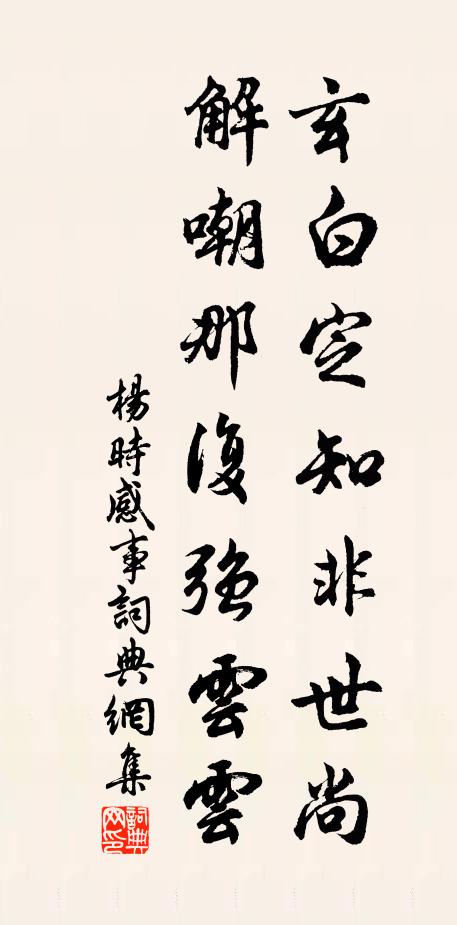 玄白定知非世尚
解嘲那復強雲雲
楊時感事詞典網集
詞典网印